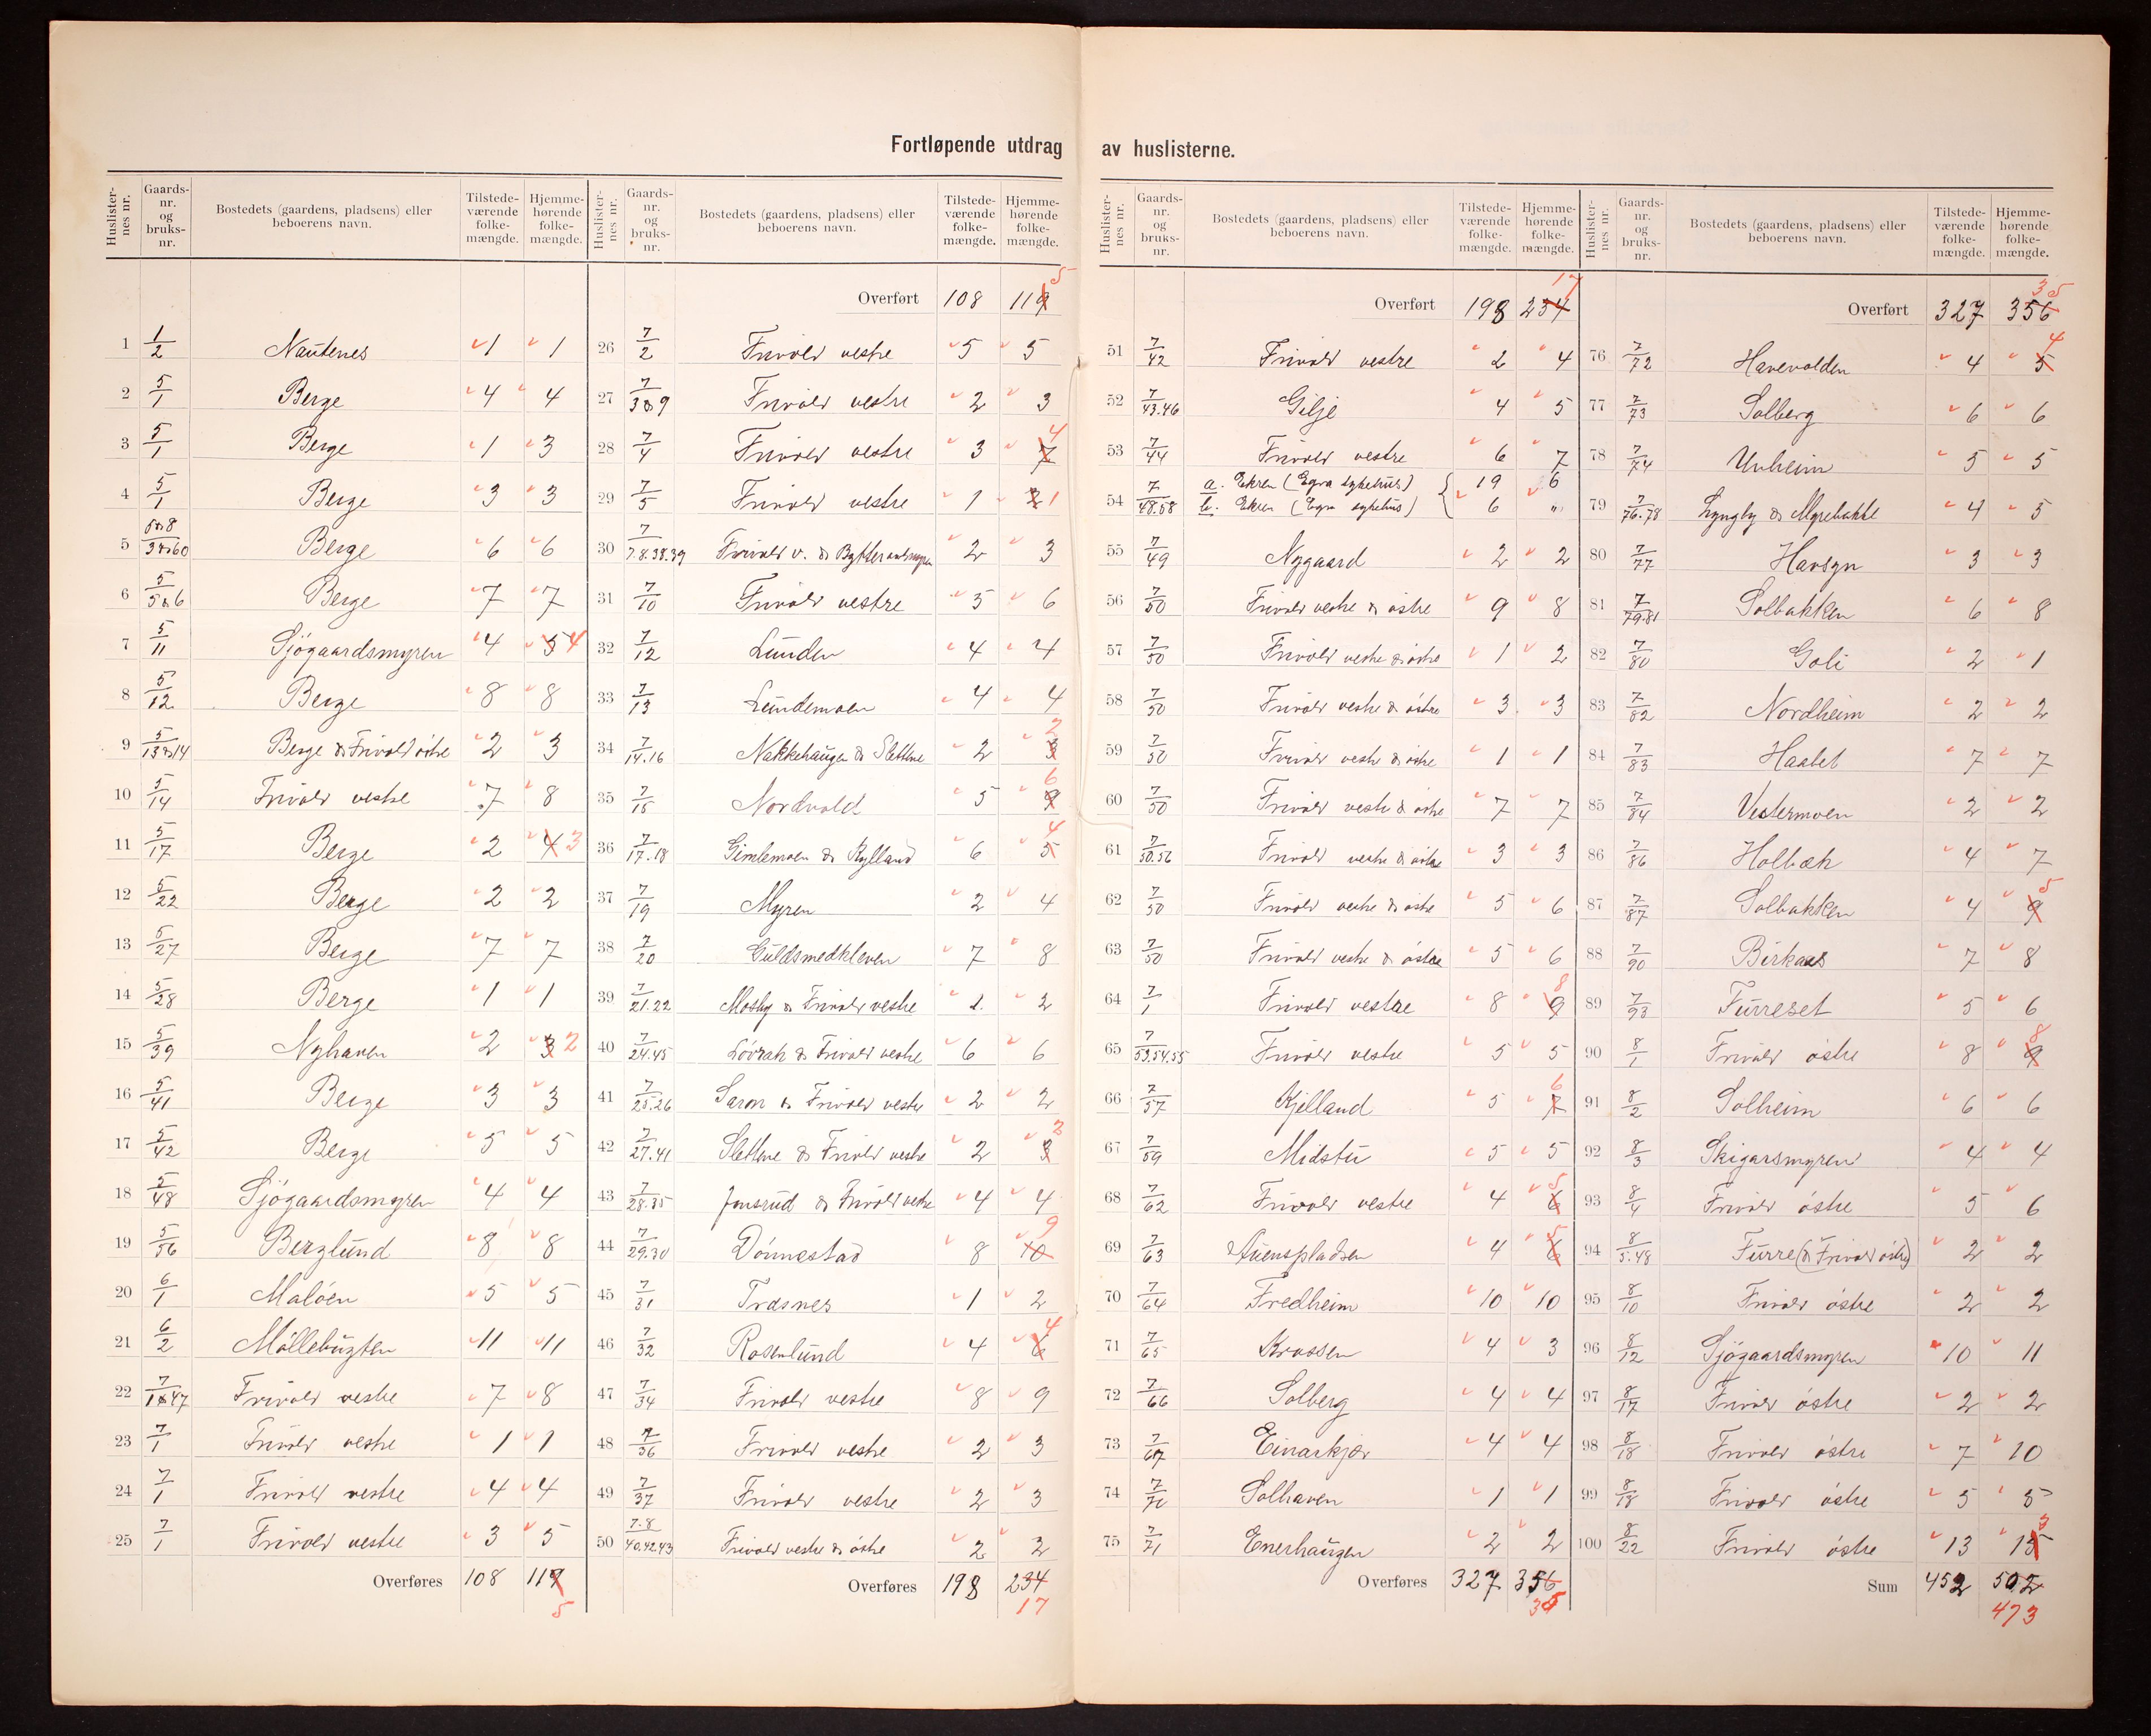 Fortløpende utdrag av huslisterne.
Huslisternes nr. Gaards-nr. og bruks-nr. Bostedets (gaardens, pladsens) eller beboerens navn. Tilstede-værende folke-mængde. Hjemme-hørende folke-mængde.
1 1/2 Nautenes 1 1
2 5/1 Berge 4 4
3 5/1 Berge 1 3
4 5/1 Berge 3 3
5 Berge 6 6
6 5/5&6 Berge 7 7
7 5/11 Sjøgaardsmyren 4 5 4
8 5/12 Berge 8 8
9 5/13&14 Berge & Frivold østre 2 3
10 5/14 Frivold vestre 7 8
11 5/17 Berge 2 4 3
12 5/22 Berge 2 2
13 5/27 Berge 7 7
14 5/28 Berge 1 1
15 5/39 Nyhaven 2 3 2
16 5/41 Berge 3 3
17 5/42 Berge 5 5
18 5/48 Sjøgaardsmyren 4 4
19 5/56 Berglund 8 8
20 6/1 Maløen 5 5
21 6/2 Møllebugten 11 11
22 7/1&47 Frivold vestre 7 8
23 7/1 Frivold vestre 1 1
24 7/1 Frivold vestre 4 4
25 7/1 Frivold vestre 3 5
Overføres 108 119 5
Huslisternes nr. Gaards-nr. og bruks-nr. Bostedets (gaardens, pladsens) eller beboerens navn. Tilstede-værende folke-mængde. Hjemme-hørende folke-mængde.
Overført 108 119 5
26 7/2 Frivold vestre 5 5
27 7/3&9 Frivold vestre 2 3
28 7/4 Frivold vestre 3 7 4
29 7/5 Frivold vestre 1 2 1
30 7/7.8.38.39 Frivold v. & 2 3
31 7/10 Frivold vestre 5 6
32 7/12 Lunden 4 4
33 7/13 Lundemoen 4 4
34 7/14.16 Nakkehaugen & Slettene 2 3 2
35 7/15 Nordvold 5 9 6
36 7/17.18 Gimlemoen & Rylland 6 5 4
37 7/19 Myren 2 4
38 7/20 Guldsmedkleven 7 8
39 7/21.22 Mosby & Frivold vestre 2 2
40 7/24.45 Løvrak & Frivold vestre 6 6
41 7/25.26 Saron & Frivold vestre 2 2
42 7/27.41 Slettene & Frivold vestre 2 3 2
43 7/28.35 Jonsrud & Frivold vestre 4 4
44 7/29.30 Dønnestad 8 10 9
45 7/31 Trasnes 1 2
46 7/32 Rosenlund 4 6 4
47 7/34 Frivold vestre 8 9
48 7/36 Frivold vestre 2 3
49 7/37 Frivold vestre 2 3
50 7.8/40.42.43 Frivold vestre & østre 2 2
Overføres 198 234 17
Huslisternes nr. Gaards-nr. og bruks-nr. Bostedets (gaardens, pladsens) eller beboerens navn. Tilstede-værende folke-mængde. Hjemme-hørende folke-mængde.
Overført 198 234 17
51 7/42 Frivold vestre 2 4
52 7/43.46 Gilje 4 5
53 7/44 Frivold vestre 6 7
54 7/48.58 a. Ekren (Egra sykehus) 19 6
b. Ekren (Egra sykehus) 6 "
55 7/49 Nygaard 2 2
56 7/50 Frivold vestre & østre 9 8
57 7/50 Frivold vestre & østre 1 2
58 7/50 Frivold vestre & østre 3 3
59 7/50 Frivold vestre & østre 1 1
60 7/50 Frivold vestre & østre 7 7
61 7/50.56 Frivold vestre & østre 3 3
62 7/50 Frivold vestre & østre 5 6
63 7/50 Frivold vestre & østre 5 6
64 7/1 Frivold vestre 8 9 8
65 7/53.54.55 Frivold vestre 5 5
66 7/57 Kjelland 5 7 6
67 7/59 Midstu 5 5
68 7/62 Frivold vestre 4 6 5
69 7/63 4 6 5
70 7/64 Fredheim 10 10
71 7/65 Krossen 4 3
72 7/66 Solberg 4 4
73 7/67 Einarkjær 4 4
74 7/70 Solhaven 1 1
75 7/71 Enerhaugen 2 2
Overføres 327 356 35
Huslisternes nr. Gaards-nr. og bruks-nr. Bostedets (gaardens, pladsens) eller beboerens navn. Tilstede-værende folke-mængde. Hjemme-hørende folke-mængde.
Overført 327 356 35
76 7/72 Havevolden 4 5 4
77 7/73 Solberg 6 6
78 7/74 Unheim 5 5
79 7/76.78 Lyngby & Myrebakke 4 5
80 7/77 Havsyn 3 3
81 7/79.81 Solbakken 6 8
82 7/80 Goli 2 1
83 7/82 Nordheim 2 2
84 7/83 Haabet 7 7
85 7/84 Vestermoen 2 2
86 7/86 Holbæk 4 7
87 7/87 Solbakken 4 9 5
88 7/90 Birkaas 7 8
89 7/93 Furreset 5 6
90 8/1 Frivold østre 8 9 8
91 8/2 Solheim 6 6
92 8/3 Skigarsmyren 4 4
93 8/4 Frivold østre 5 6
94 8/5.48 Furre (& Frivold østre) 2 2
95 8/10 Frivold østre 2 2
96 8/12 Sjøgaardsmyren 10 11
97 8/17 Frivold østre 2 2
98 8/18 Frivold østre 7 10
99 8/18 Frivold østre 5 5
100 8/22 Frivold østre 13 15 3
Sum 452 502
473